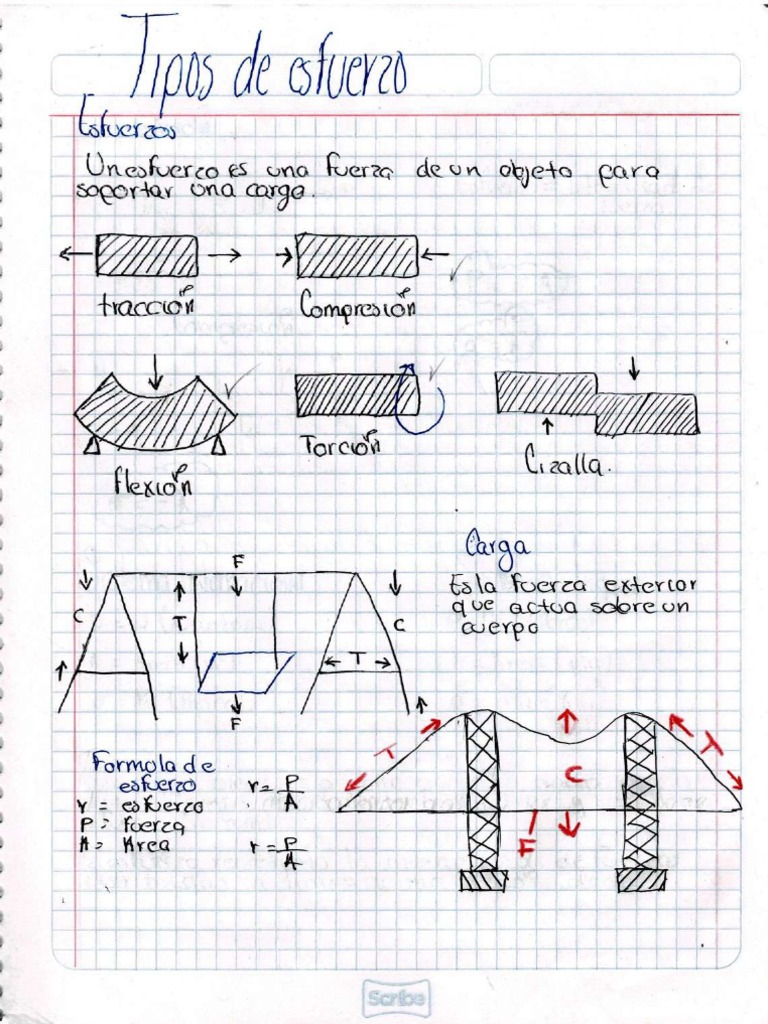 Tipos de esfuerzo
Esfuerzos
Un esfuerzo es una fuerza de un objeto para
soportar una carga.
tracción
Compresión
flexión
Torción
Cizalla.
Carga
Es la fuerza exterior
que actua sobre un
cuerpo
F
C
T
C
T
F
T
C
T
F
Formola de
esfuerzo
r = esfuerzo
P = fuerza
A = Area
r = P/A
r = P/A
Scribe